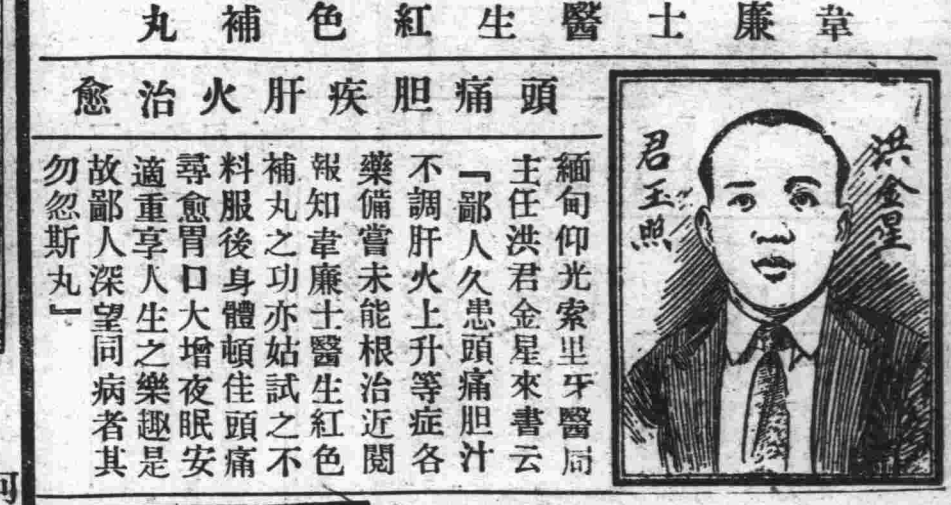 韋廉士醫生紅色補丸
頭痛胆疾肝火治愈
洪金星
君玉照
緬甸仰光索里牙醫局
主任洪君金星來書云
『鄙人久患頭痛胆汁
不調肝火上升等症各
藥備嘗未能根治近閱
報知韋廉士醫生紅色
補丸之功亦姑試之不
料服後身體頓佳頭痛
尋愈胃口大增夜眠安
適重享人生之樂趣是
故鄙人深望同病者其
勿忽斯丸』